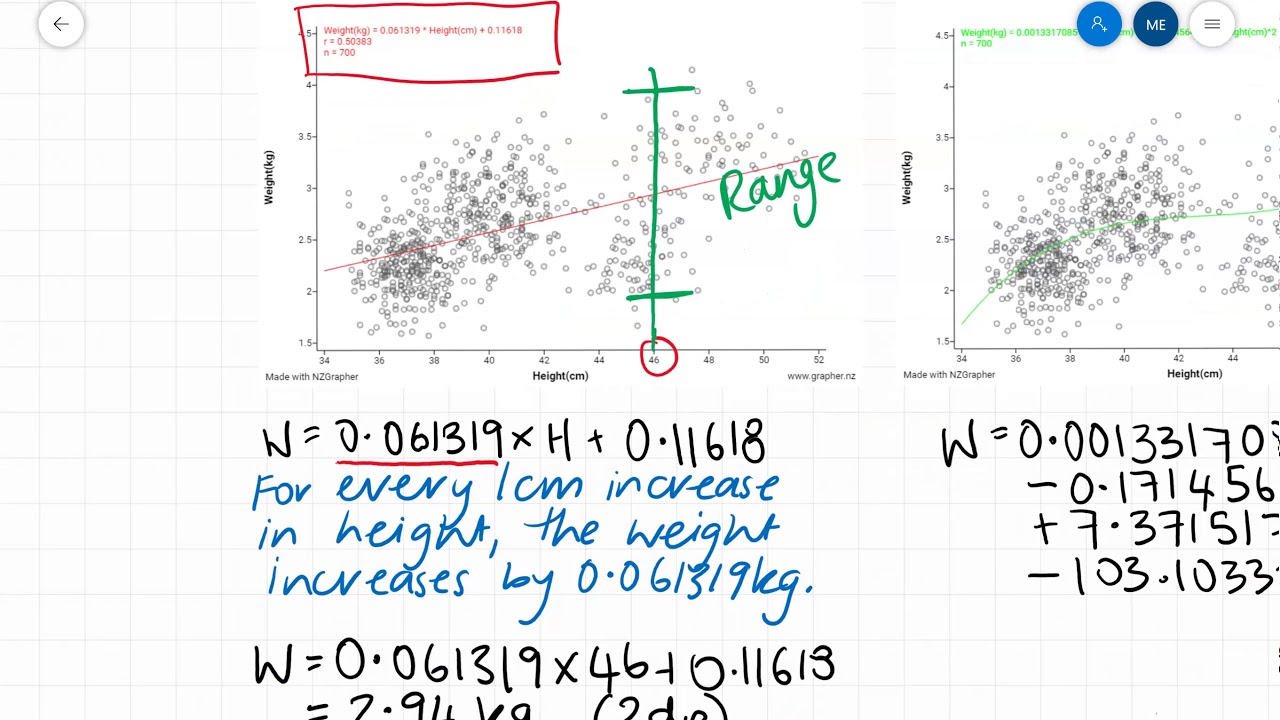 ME
Weight(kg) = 0.061319 * Height(cm) + 0.11618
r = 0.50383
n = 700
4.5
4
3.5
3
2.5
2
1.5
Weight(kg)
Range
34 36 38 40 42 44 46 48 50 52
Made with NZGrapher
Height(cm)
www.grapher.nz
n = 700
4.5
4
3.5
3
2.5
2
1.5
Weight(kg)
34 36 38 40 42 44
Made with NZGrapher
Height(cm)
W = 0.061319 × H + 0.11618
For every 1cm increase
in height, the weight
increases by 0.061319kg.
W = 0.061319 × 46 + 0.11618
= 2.94 kg (2dp)
W = 0.00133170
- 0.171456
+ 7.371517
- 103.1033